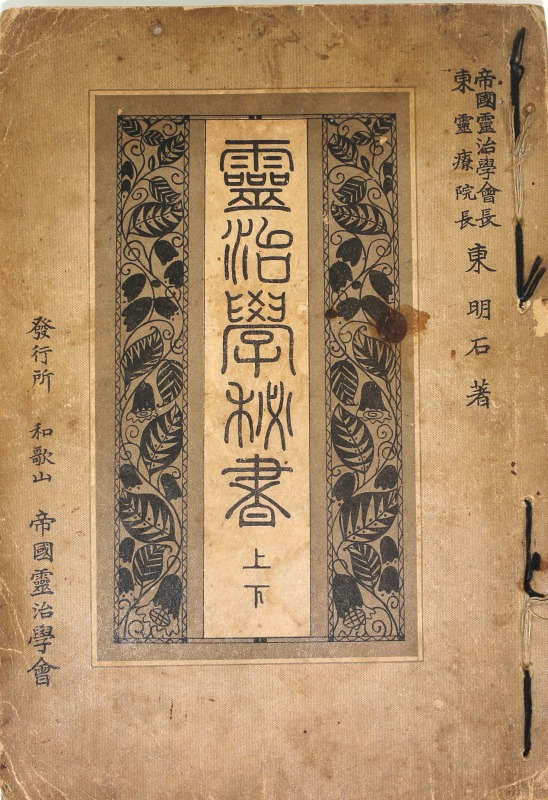 帝國靈治學會長
東靈療院長
東明石著
靈治學秘書
上下
發行所 和歌山 帝國靈治學會